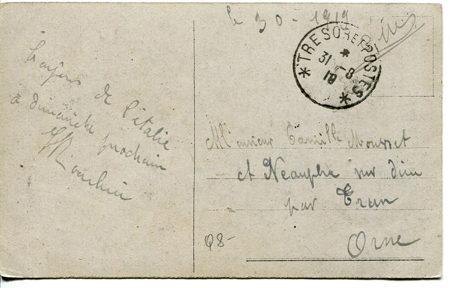 le 30-1919
TRESOR ET POSTES
31-8
19
de l'étalie
a dimanche prochain
Monsieur Camille Mousset
et Neauphe sur dive
par Trun
Orne
Q8-